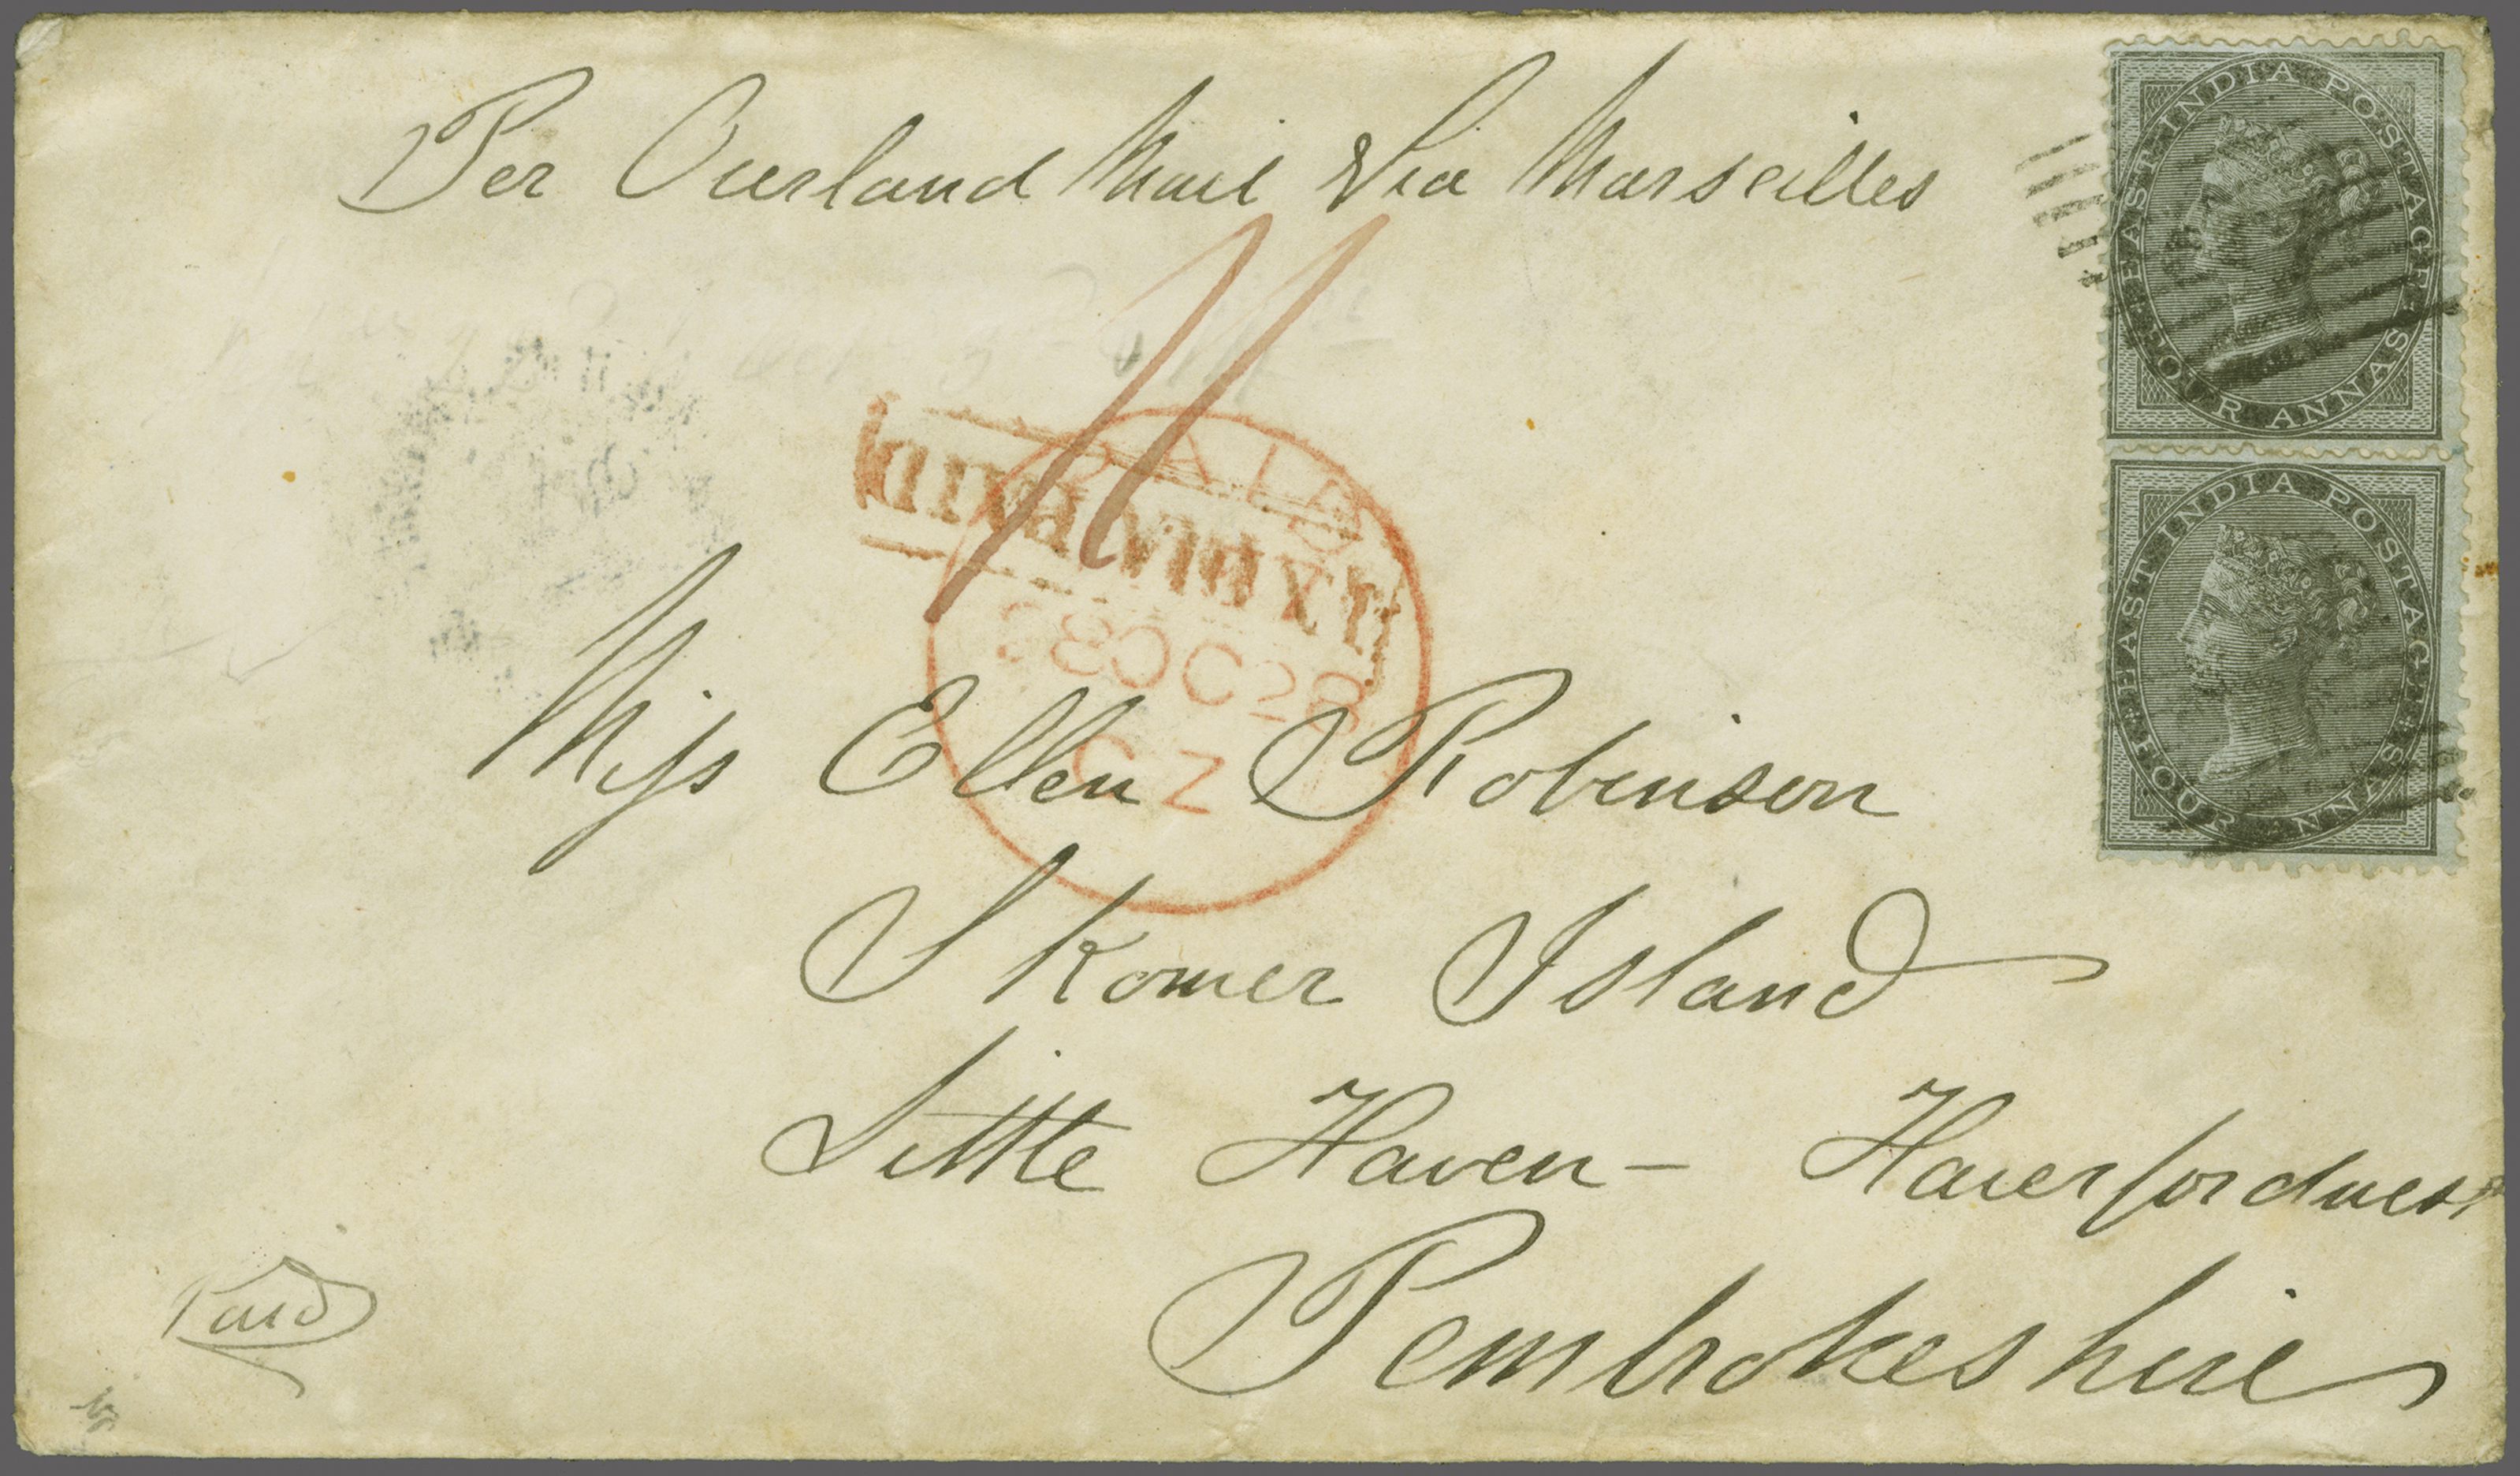 Per Overland Mail Via Marseilles
EAST INDIA POSTAGE
FOUR ANNAS
EAST INDIA POSTAGE
FOUR ANNAS
PAID
28 OC 28
CZ
Miss Ellen Robinson
Skomer Island
Little Haven – Haverfordwest
Pembrokeshire
Paid